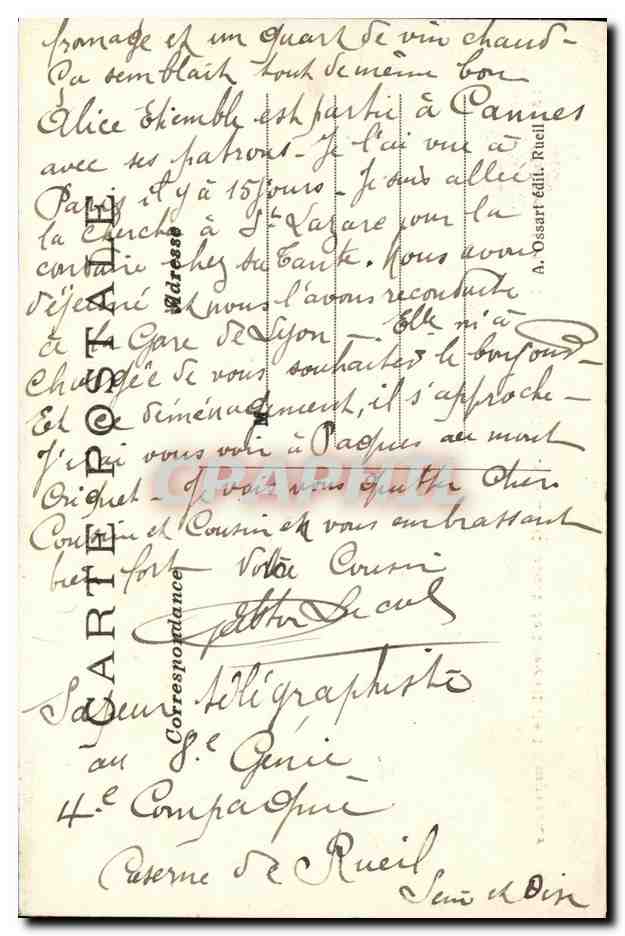 fromage et un quart de vin chaud -
Ça semblait tout de même bon
Alice Etiemble est partie à Cannes
avec ses patrons - Je l'ai vue à
Paris il y à 15 jours - Je suis allée
la cherche à St Lazare pour la
conduire chez sa Tante. Nous avons
déjeuné et nous l'avons reconduite
à la Gare de Lyon - Elle m'à
Chargée de vous souhaiter le bonjour -
Et ce déménagement, il s'approche -
J'irai vous voir à Paques au mont
Criquet - Je vais vous quitter Cher
Cousine et Cousin en vous embrassant
bien fort Votre Cousin
Sapeur télégraphiste
au 8.e Génie
4.e Compagnie
Caserne de Rueil
Seine et Oise
CARTE POSTALE
Correspondance
Adresse
M
A. Ossart édit. Rueil
CPARAMA.COM